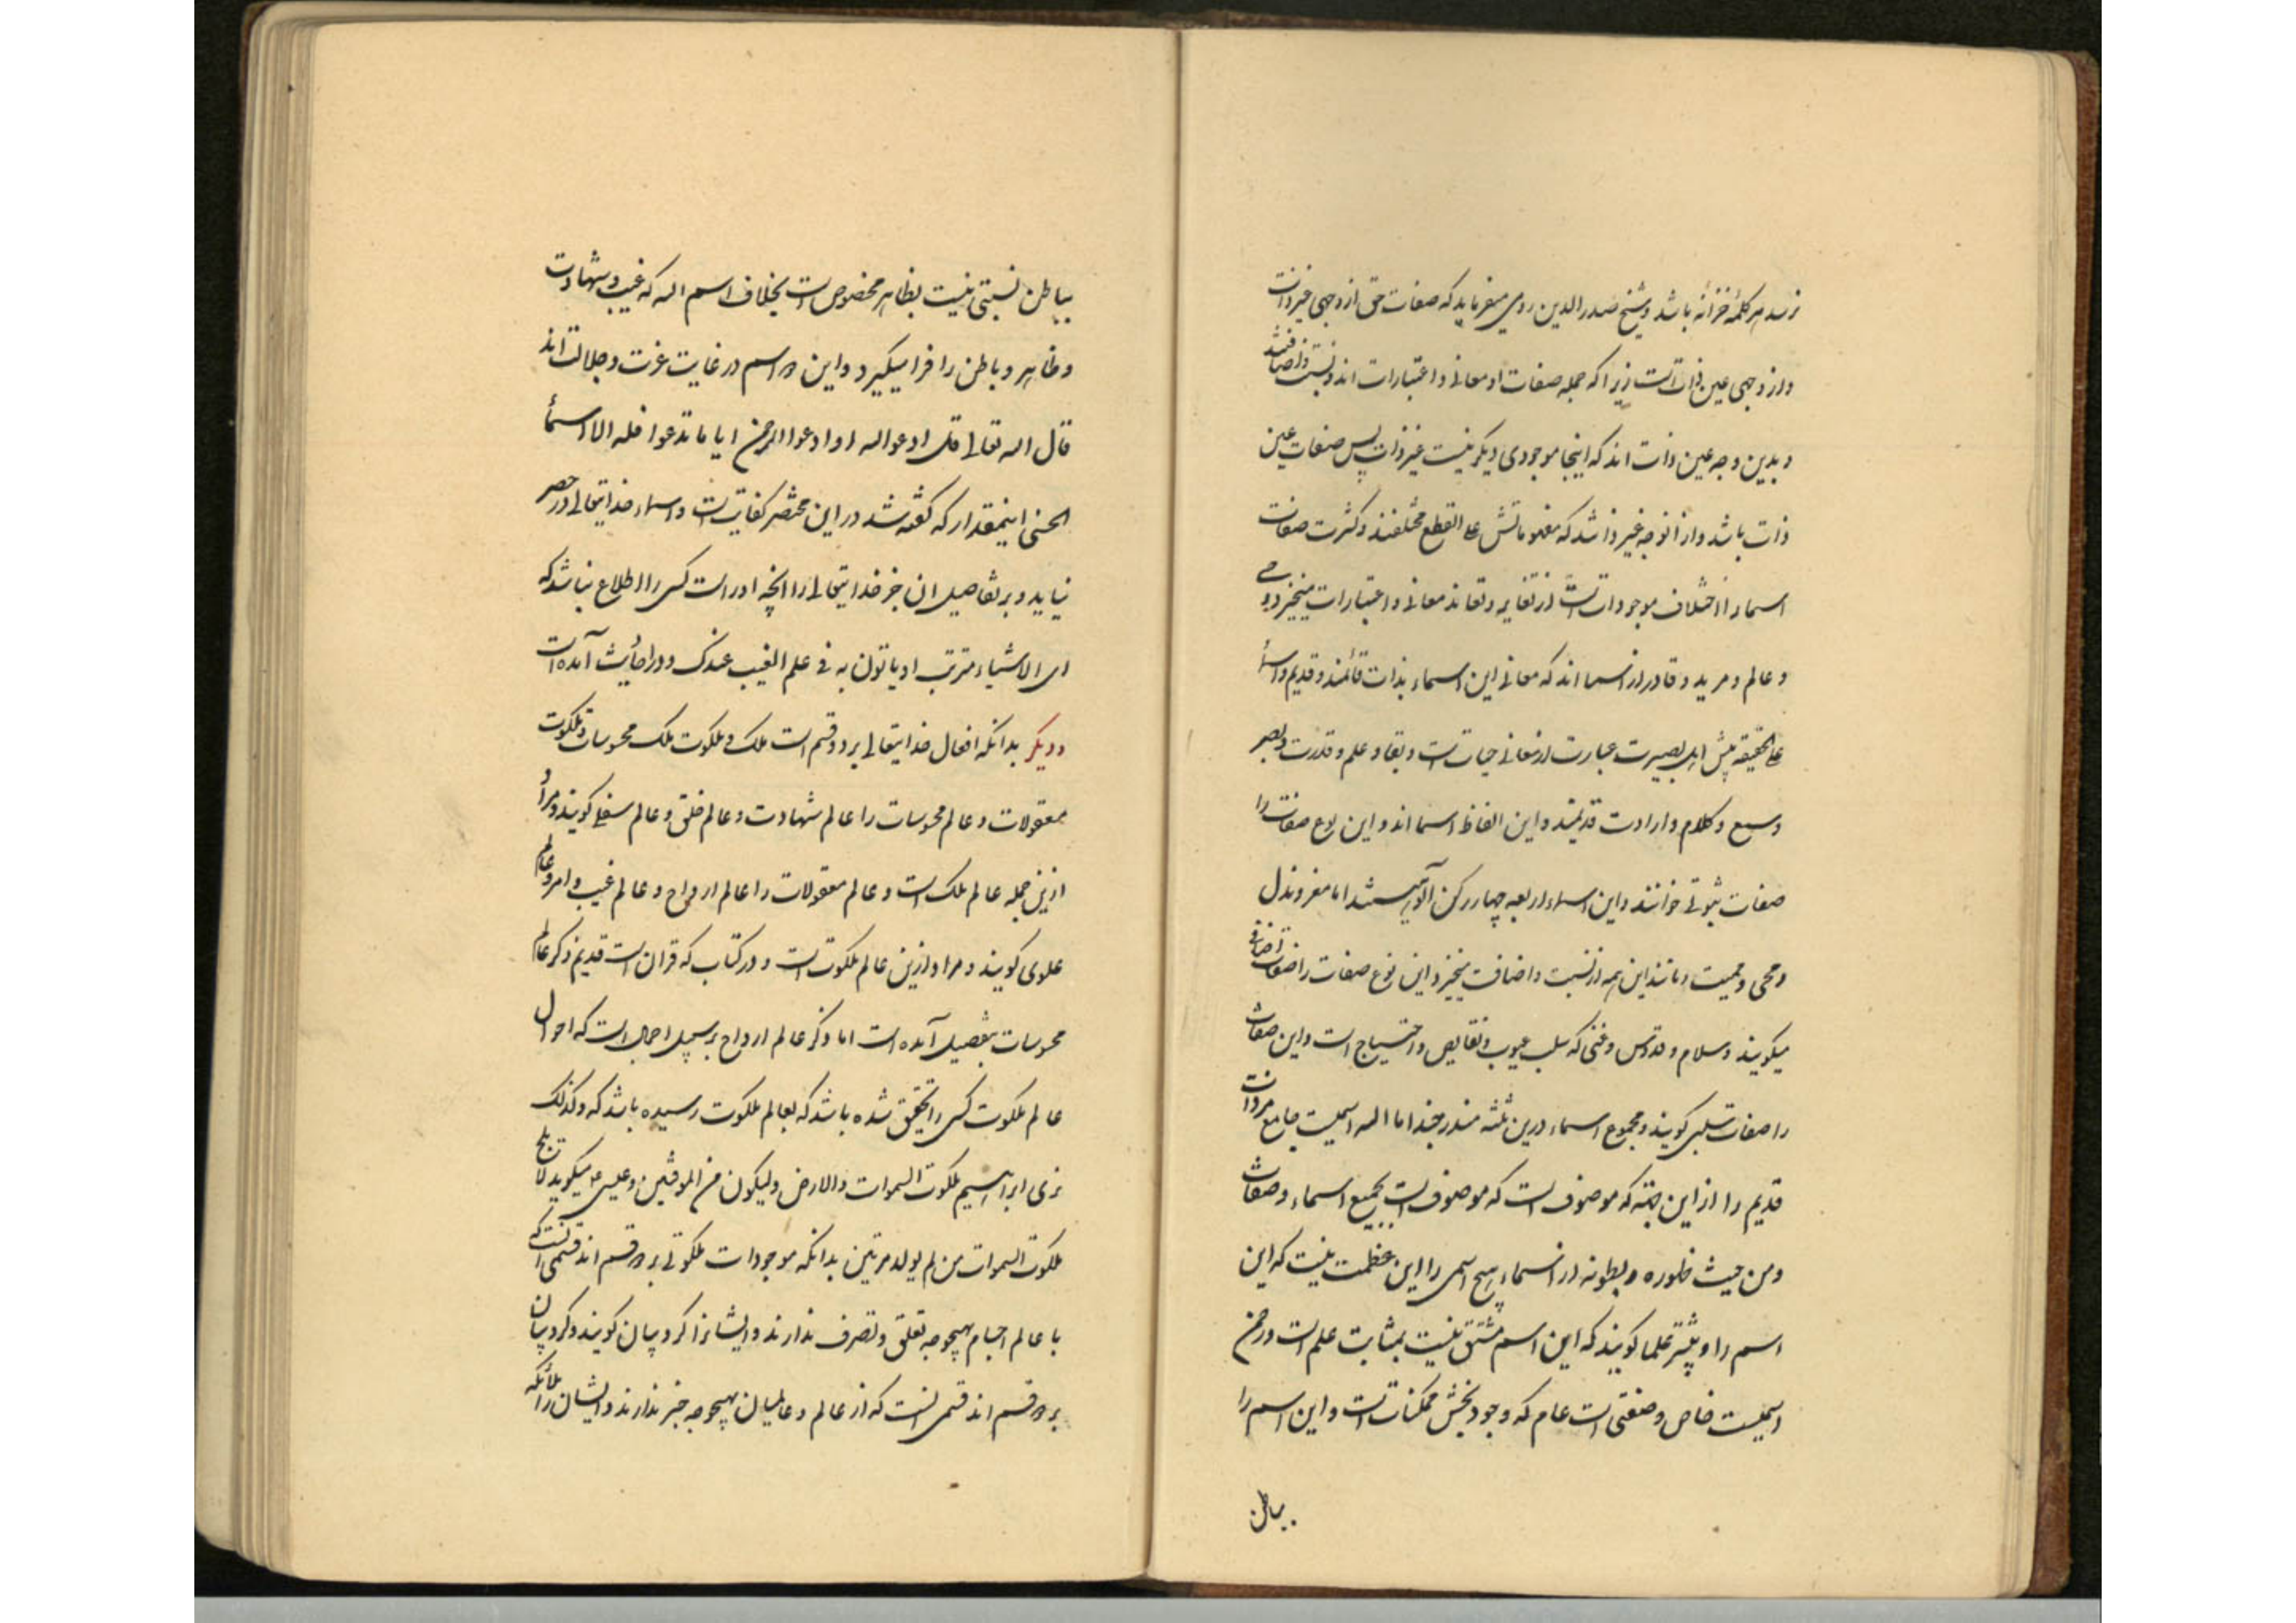 نرسد هر کلمهٔ خزانه باشد و شیخ صدر الدین رومی میفرماید که صفات حق از وجهی غیر ذاتست
و از وجهی عین ذاتست زیرا که جمله صفات او معانی و اعتبارات اند و نسب و اضافتند
و بدین وجه عین ذات اند که اینجا موجودی دیگر نیست غیر ذات پس صفات عین
ذات باشد و از آنوجه غیر ذاتند که مفهوماتش علی القطع مختلفند و کثرت صفات
اسما را اختلاف موجوداتست از تغایر و تعاند معانی و اعتبارات میخیزد و حی
و عالم و مرید و قادر از اسما اند که معانی این اسماء بذات قائمند و قدیم و اسما
علی الحقیقه پیش اهل بصیرت عبارت از معانی حیاتست و بقا و علم و قدرت و بصر
و سمع و کلام و ارادت قدیمند و این الفاظ اسما اند و این نوع صفات را
صفات ثبوتی خوانند و این اسماء اربعه چهار رکن الوهیتند اما معز و مذل
و محی و ممیت و مانند این همه از نسبت و اضافت میخیزد این نوع صفات را صفات اضافی
میگویند و سلام و قدوس و غنی که سلب عیوب و نقایص و احتیاج است و این صفات
را صفات سلبی گویند و مجموع اسماء درین ثلثه مندرجند اما الله اسمیست جامع مر ذات
قدیم را از این جهته که موصوف است که موصوفست بجمیع اسماء و صفات
و من حیث ظهوره و بطونه در اسماء هیچ اسمی را این عظمت نیست که این
اسم را و بیشتر علما گویند که این اسم مشتق نیست بمثابت علم است و رحمن
اسمیست خاص و صفتی است عام که وجود بخش ممکناتست و این اسم را
بباطن
بباطن نسبتی نیست بظاهر مخصوص است بخلاف اسم الله که غیب و شهادت
و ظاهر و باطن را فرا میگیرد و این دو اسم در غایت عزت و جلالت اند
قال الله تعالی قل ادعوا الله او ادعوا الرحمن ایا ما تدعوا فله الاسماء
الحسنی اینمقدار که گفته شد در این مختصر کفایتست و اسماء خدایتعالی در حصر
نیاید و بر تفاصیل ان جز خدایتعالی را انچه اوراست کس را اطلاع نباشد که
به فی علم الغیب عندک و در احادیث آمده است
و دیگر بدانکه افعال خدایتعالی بر دو قسم است ملک و ملکوت ملک محسوسات و ملکوت
معقولات و عالم محسوسات را عالم شهادت و عالم خلق و عالم سفلی گویند و مراد
ازین جمله عالم ملک است و عالم معقولات را عالم ارواح و عالم غیب و امر و عالم
علوی گویند و مراد ازین عالم ملکوتست و در کتاب که قران است قدیم ذکر عالم
محسوسات بتفصیل آمده است اما ذکر عالم ارواح بر سبیل اجمال است که احوال
عالم ملکوت کسی را تحقیق شده باشد که بعالم ملکوت رسیده باشد که و کذلک
نری ابراهیم ملکوت السموات والارض و لیکون من الموقنین و عیسی ع میگوید لا یلج
ملکوت السموات من لم یولد مرتین بدانکه موجودات ملکوتی بر دو قسم اند قسمی آنست که
با عالم اجسام بهیچوجه تعلق و تصرف ندارند و ایشانرا کروبیان گویند و کروبیان
بر دو قسم اند قسمی انست که از عالم و عالمیان بهیچوجه خبر ندارند و ایشان را ملائکه